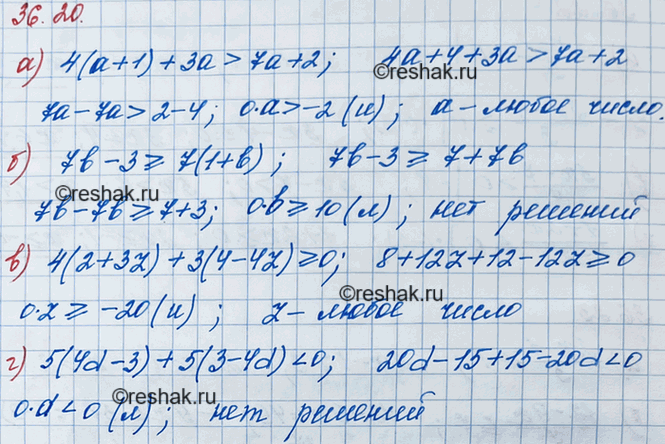 36.20.
а) 4(a+1)+3a>7a+2; 4a+4+3a>7a+2
©reshak.ru
7a-7a>2-4; 0·a>-2 (и); a - любое число.
б) 7b-3≥7(1+b); 7b-3≥7+7b
©reshak.ru
7b-7b≥7+3; 0·b≥10 (л); нет решений
в) 4(2+3z)+3(4-4z)≥0; 8+12z+12-12z≥0
©reshak.ru
0·z≥-20 (и); z - любое число
г) 5(4d-3)+5(3-4d)<0; 20d-15+15-20d<0
©reshak.ru
0·d<0 (л); нет решений